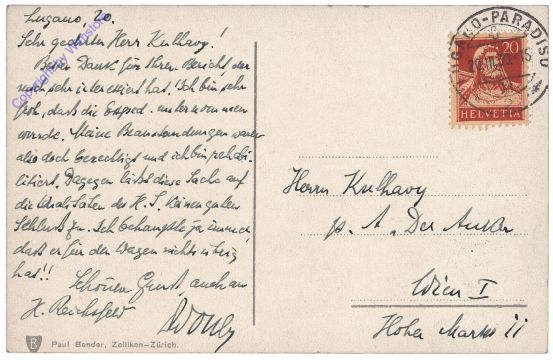 Lugano, 20.
Sehr geehrter Herr Kulhavy!
Besten Dank für Ihren Bericht der
mich sehr interessiert hat. Ich bin sehr
froh, dass die Exped. unternommen
wurde. Meine Beanstandungen waren
also doch berechtigt und ich bin rehabi-
litiert. Dagegen lässt diese Sache auf
die Qualitäten des H. J.
Schluss zu. Ich behauptete ja immer
dass er für den Wagen nichts übrig
hat!!
Schönen Gruss auch an
H. Reichsfeld
LUGANO-PARADISO
20
HELVETIA
Herrn Kulhavy
p. A. "Der
Wien I
Hoher Markt 11
R
Paul Bender, Zollikon-Zürich.
Copyright by